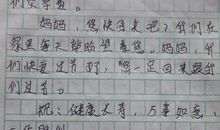 妈妈，您快回来吧！我们在
家里每天都盼望着您，妈妈，我
们快要过节时，您一定回来跟我
们过节。
祝：健康长寿，万事如意